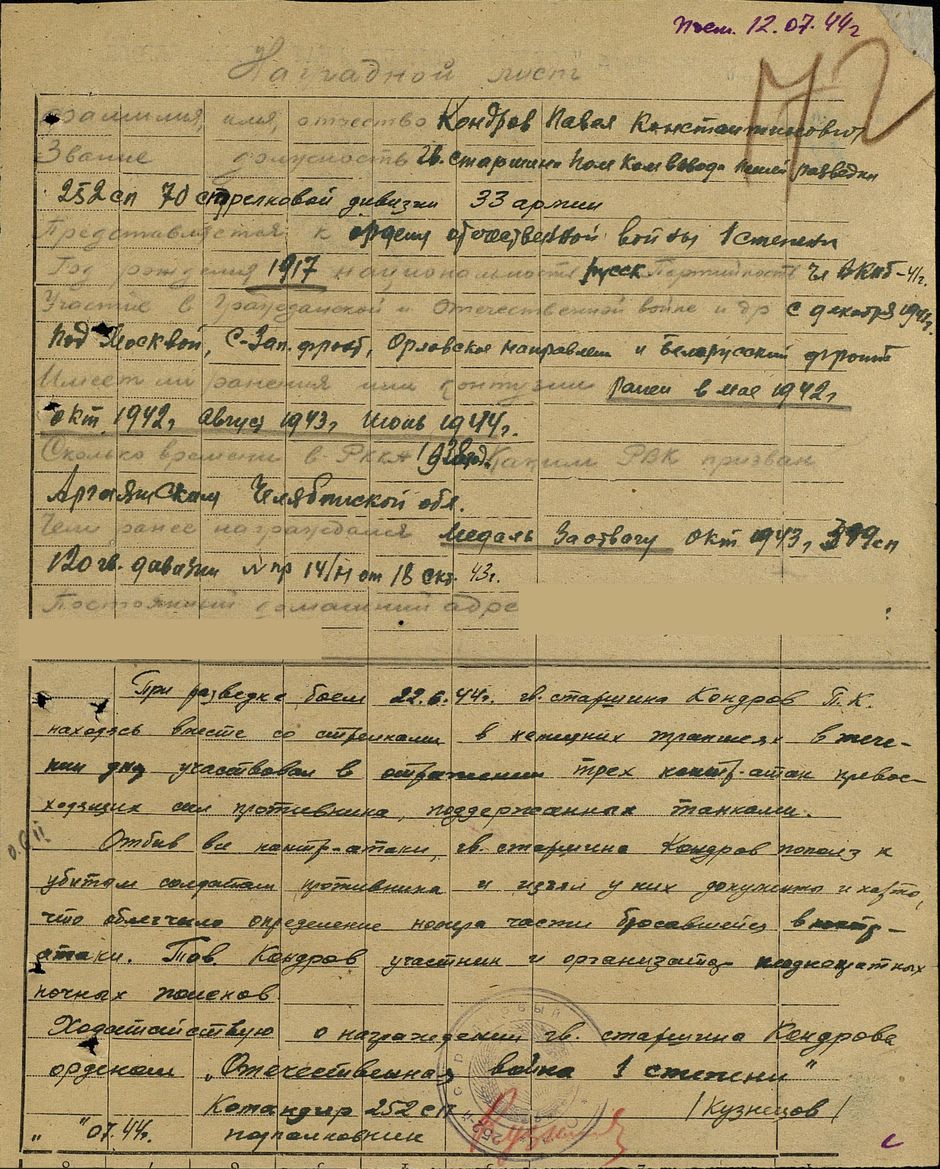 Пост. 12.07.44г
Наградной лист
Фамилия, имя, отчество Кондров Павел Константинович
Звание должность Гв. старшина Пом Ком взвода пешей разведки
252 сп 70 стрелковой дивизии 33 армии
Представляется к ордену отечественной войны 1 степени
Год рождения 1917 национальность русск Партийность чл ВКПб-41г.
Участие в гражданской и Отечественной войне и др с декабря 1941г.
Под Москвой, С-Зап. фронт, Орловское направлен и Белорусский фронт
Имеет ли ранения или контузии Ранен в мае 1942г
Окт. 1942г Август 1943г Июнь 1944г.
Сколько времени в РККА 1938 Каким РВК призван
Аргаяшским Челябинской обл.
Чем ранее награждался Медаль За отвагу окт 1943г 399 сп
120 гв. дивизии № пр 14/н от 18 окт. 43г.
Постоянный домашний адрес
При разведке боем 22.6.44г. гв. старшина Кондров П.К.
находясь вместе со стрелками в немецких траншеях в тече-
нии дня участвовал в отражении трех контр-атак превос-
ходящих сил противника, поддержанных танками.
Отбив все контр-атаки, гв. старшина Кондров пополз к
убитым солдатам противника и изъял у них документы и карту,
что облегчило определение номера части бросавшейся в контр-
атаки. Тов. Кондров участник и организатор
ночных поисков.
Ходатайствую о награждении гв. старшина Кондрова
орденом „Отечественная война 1 степени"
Командир 252 сп /Кузнецов/
„ " 07.44г. подполковник